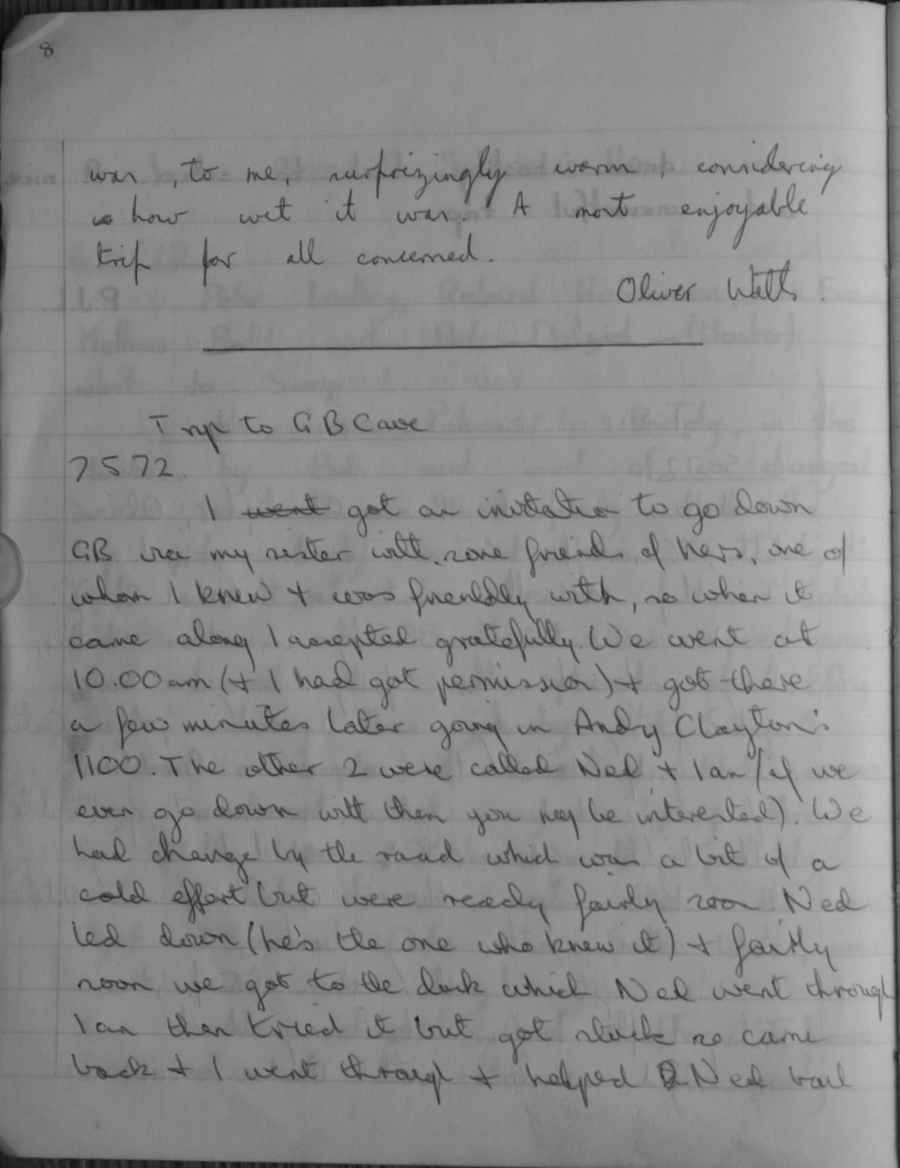 8
was, to me, surprizingly warm, considering
how wet it was. A most enjoyable
trip for all concerned.
Oliver Wells.
Trip to GB Cave
7 5 72.
I went got an invitation to go down
GB via my sister with some friends of hers, one of
whom I knew + was frienldly with, so when it
came along I accepted gratefully. We went at
10.00am (+ I had got permission) + got there
a few minutes later going in Andy Clayton's
1100. The other 2 were called Ned + Ian (if we
ever go down with them you may be interested). We
had change by the road which was a bit of a
cold effort but were ready fairly soon. Ned
led down (he's the one who knew it) + fairly
soon we got to the duck which Ned went through
Ian then tried it but got stuck so came
back + I went through + helped Ned bail